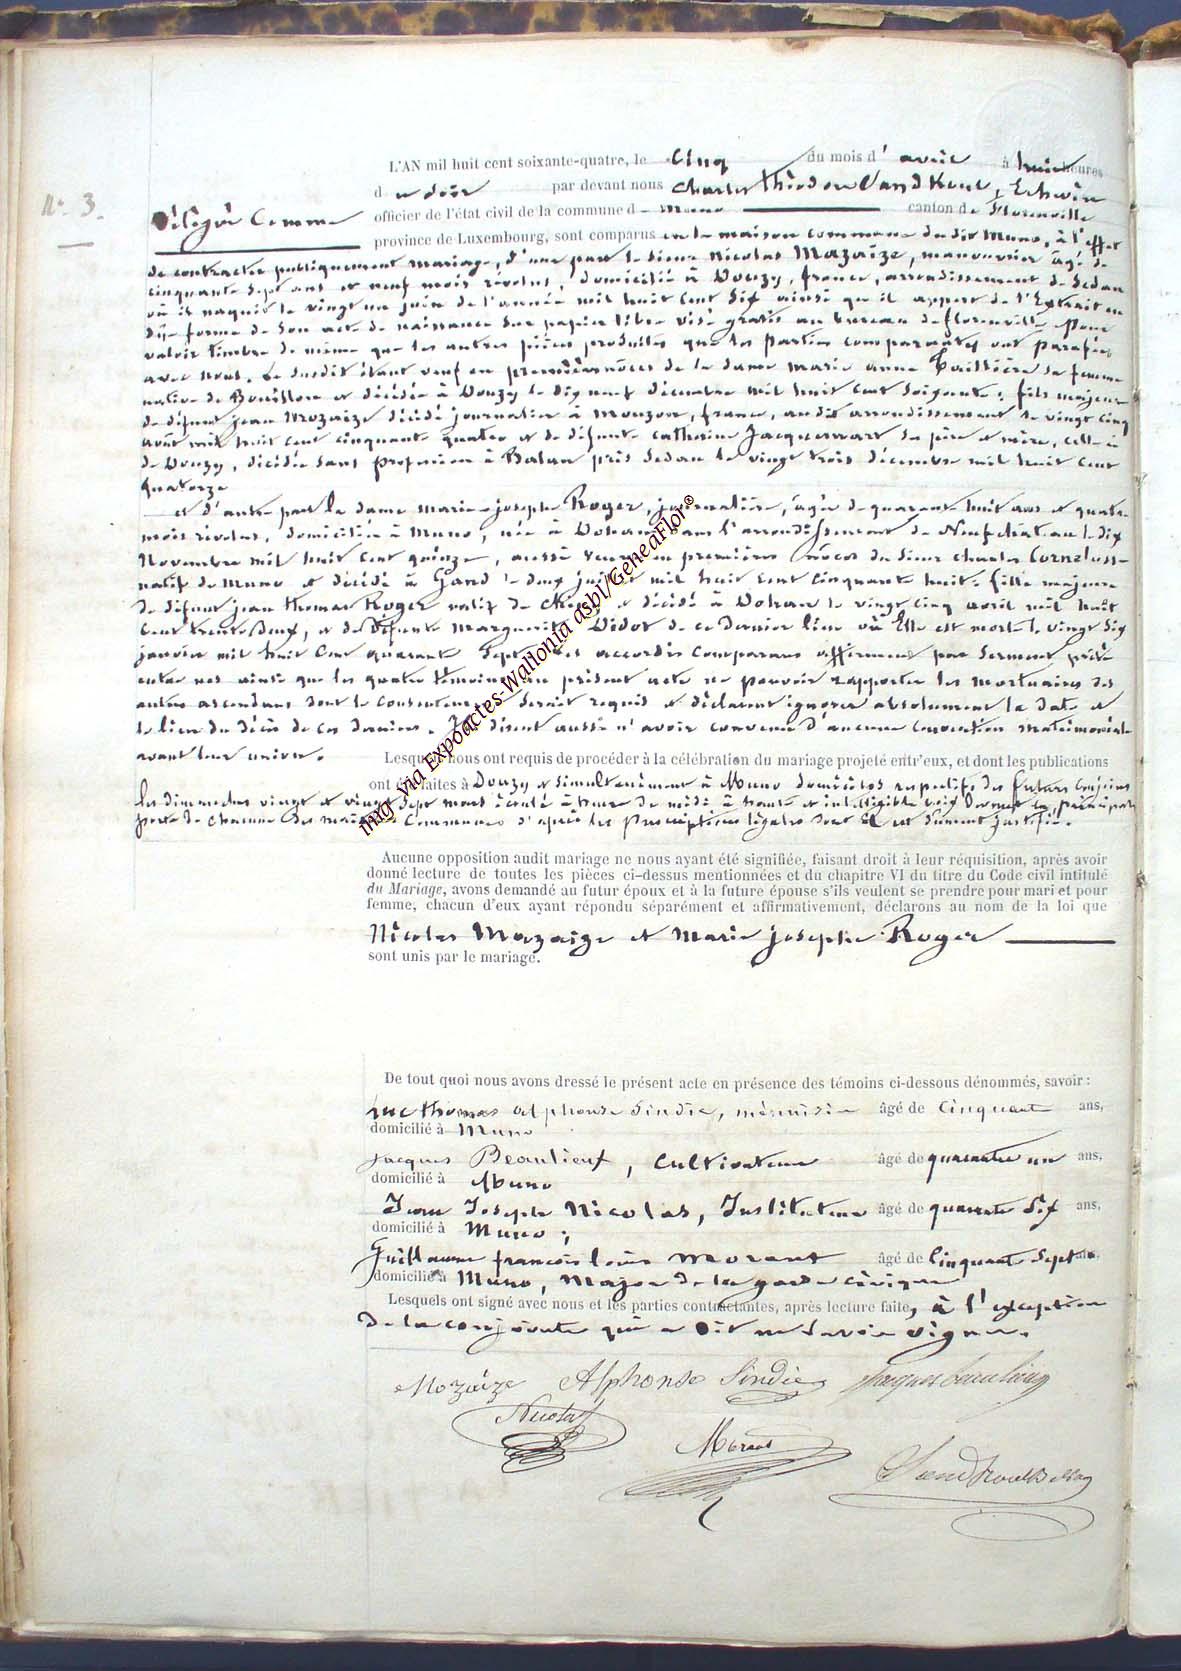 N° 3.
L'AN mil huit cent soixante-quatre, le cinq du mois d'avril à huit heures
du soir par devant nous Charles Théodore Vand Echevin
Délégué Comme officier de l'état civil de la commune de Muno canton de Florenville
province de Luxembourg, sont comparus en la maison commune dudit Muno, à l'effet
de contracter publiquement mariage, d'une part le sieur Nicolas Mozaize, manouvrier âgé de
cinquante sept ans et neuf mois révolus, domicilié à Douzy, france, arrondissement de Sedan
où il naquit le vingt un juin de l'année mil huit cent six ainsi qu'il appert de l'Extrait en
due forme de son acte de naissance sur papier libre visé gratis au bureau de florenville pour
valoir timbre de même que les autres pièces produites que les parties comparantes ont parafées
avec nous. Le susdit étant veuf en premières nôces de la dame marie anne sa femme
native de Bouillon et décédée à Douzy le dix neuf décembre mil huit cent soixante; fils majeur
de défunt jean Mozaize décédé journalier à Mouzon, france, audit arrondissement le vingt cinq
août mil huit cent cinquante quatre et de défunte catherine Jacquemart ses père et mère, celle-ci
de Douzy, décédée sans profession à Balan près Sedan le vingt trois décembre mil huit cent
quatorze
et d'autre part la dame marie-joseph Roger, journalière, âgée de quarante huit ans et quatre
mois révolus, domiciliée à Muno, née à Dohan dans l'arrondissement de Neufchâteau le dix
Novembre mil huit cent quinze, aussi veuve en premières nôces du sieur charles
natif de Muno et décédé à Gand le deux mil huit cent cinquante huit: fille majeure
de défunt jean thomas Roger natif de et décédé à Dohan le vingt cinq avril mil huit
cent trente deux, et de défunte Marguerite Didot de ce dernier lieu où Elle est morte le vingt six
janvier mil huit cent quarante sept. Les accordés comparans affirment par serment prêté
entre nos ainsi que les quatre témoins au présent acte ne pouvoir rapporter les mortuaires des
autres ascendans dont le consentement serait requis et déclarent ignorer absolument la date et
le lieu du décès de ces derniers. Ils disent aussi n'avoir convenu d'aucune convention matrimoniale
avant leur union.
Lesquels nous ont requis de procéder à la célébration du mariage projeté entr'eux, et dont les publications
ont été faites à Douzy et simultanément à Muno domiciles respectifs des futurs conjoints
les dimanches vingt et vingt sept mars écoulé à heure de midi à haute et intelligible voix devant la principale
porte de chacune des maisons communes d'après les prescriptions légales dont il est dûment justifié.
Aucune opposition audit mariage ne nous ayant été signifiée, faisant droit à leur réquisition, après avoir
donné lecture de toutes les pièces ci-dessus mentionnées et du chapitre VI du titre du Code civil intitulé
du Mariage, avons demandé au futur époux et à la future épouse s'ils veulent se prendre pour mari et pour
femme, chacun d'eux ayant répondu séparément et affirmativement, déclarons au nom de la loi que
Nicolas Mozaize et Marie josephe Roger
sont unis par le mariage.
De tout quoi nous avons dressé le présent acte en présence des témoins ci-dessous dénommés, savoir :
Luc thomas alphonse Sindic, menuisier âgé de cinquante ans,
domicilié à Muno
jacques Beaulieux, Cultivateur âgé de quarante un ans,
domicilié à Muno
Jean Joseph Nicolas, Instituteur âgé de quarante six ans,
domicilié à Muno;
Guillaume françois louis Morant âgé de cinquante sept ans,
domicilié à Muno, Major de la garde civique
Lesquels ont signé avec nous et les parties contractantes, après lecture faite, à l'exception
de la conjointe qui a dit ne savoir signer.
Mozaize Alphonse Sindic Jacques beaulieux
Nicolas
Morant
img via Expoactes-Wallonia asbl/GeneaFlor®